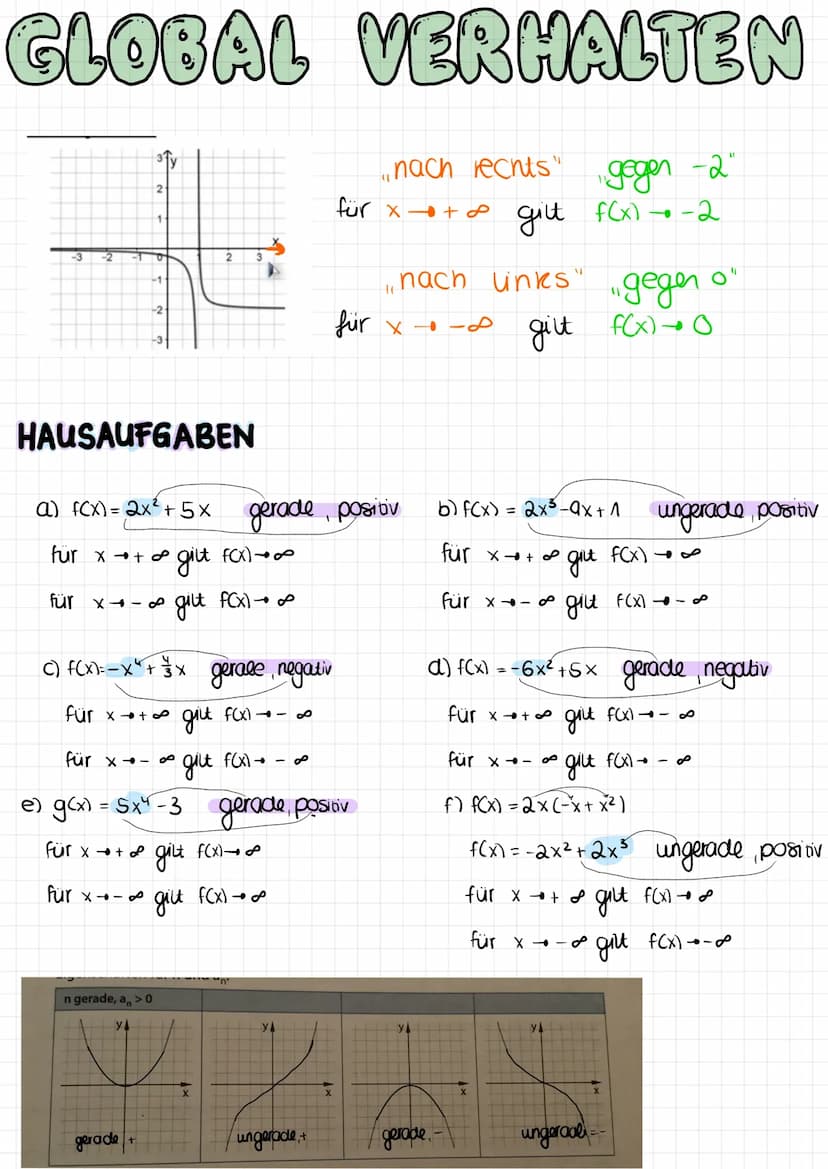 GLOBAL VERHALTEN
3 y
2
1
-3 -2 -1 0 1 2 3 x
-1
-2
-3
„nach rechts" „gegen -2"
für x → + ∞ gilt f(x) → -2
„nach links" „gegen 0"
für x → -∞ gilt f(x) → 0
HAUSAUFGABEN
a) f(x) = 2x² + 5x gerade, positiv
für x → + ∞ gilt f(x) → ∞
für x → - ∞ gilt f(x) → ∞
b) f(x) = 2x³-9x+1 ungerade, positiv
für x → + ∞ gilt f(x) → ∞
für x → - ∞ gilt f(x) → - ∞
c) f(x) = -x⁴ + 4/3 x gerade, negativ
für x → + ∞ gilt f(x) → - ∞
für x → - ∞ gilt f(x) → - ∞
d) f(x) = -6x² + 5x gerade, negativ
für x → + ∞ gilt f(x) → - ∞
für x → - ∞ gilt f(x) → - ∞
e) g(x) = 5x⁴ - 3 gerade, positiv
für x → + ∞ gilt f(x) → ∞
für x → - ∞ gilt f(x) → ∞
f) f(x) = 2x (-x + x²)
f(x) = -2x² + 2x³ ungerade, positiv
für x → + ∞ gilt f(x) → ∞
für x → - ∞ gilt f(x) → -∞
n gerade, aₙ > 0
y y y y
x x x x
gerade + ungerade, + gerade, - ungerade -